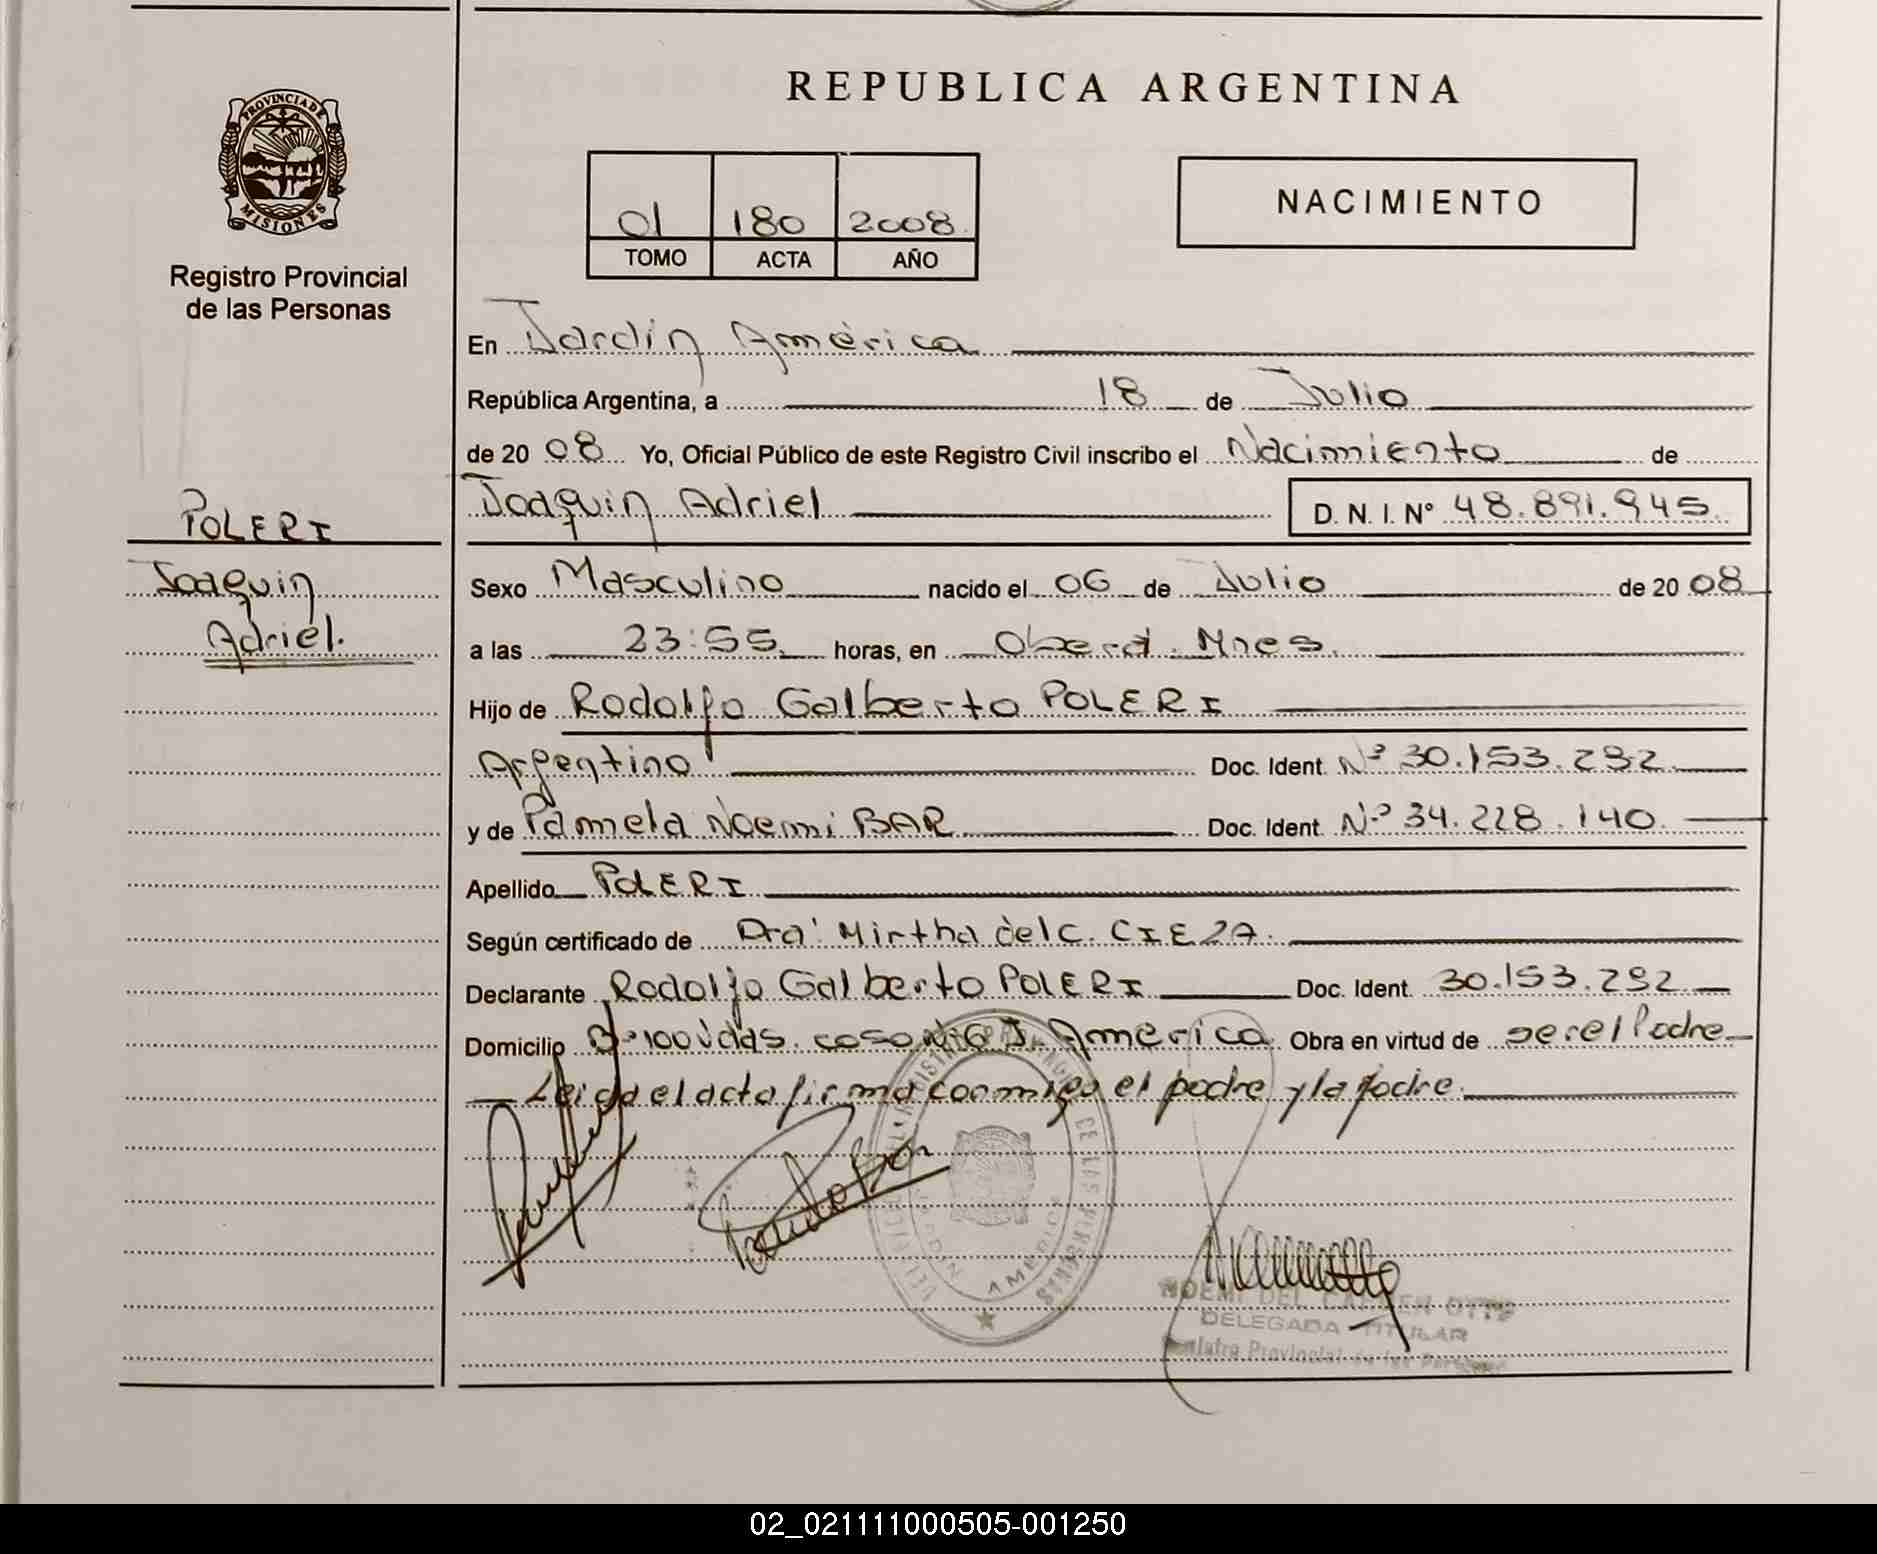 REPUBLICA ARGENTINA
PROVINCIA DE
MISIONES
Registro Provincial
de las Personas
01 180 2008
TOMO ACTA AÑO
NACIMIENTO
En Jardín América
República Argentina, a 18 de Julio
de 20 08 Yo, Oficial Público de este Registro Civil inscribo el Nacimiento de
Joaquin Adriel D. N. I. Nº 48.891.945
POLERI
Joaquin
Adriel.
Sexo Masculino nacido el 06 de Julio de 20 08
a las 23:55 horas, en Oberá. Mnes.
Hijo de Rodolfo Galberto POLERI
Argentino Doc. Ident. Nº 30.153.292
y de Pamela Noemi BAR Doc. Ident. Nº 34.228.140.
Apellido POLERI
Según certificado de Dra. Mirtha del C. CIEZA.
Declarante Rodolfo Galberto POLERI Doc. Ident. 30.153.292
Domicilio Bº 100 Vdas. casa Nº 6 J. América Obra en virtud de ser el Padre
Leida el acta firma conmigo el padre y la
AMERICA
DE LAS PERSONAS
NOEMI DEL CARMEN
DELEGADA TITULAR
Registro Provincial de las Personas
02_021111000505-001250